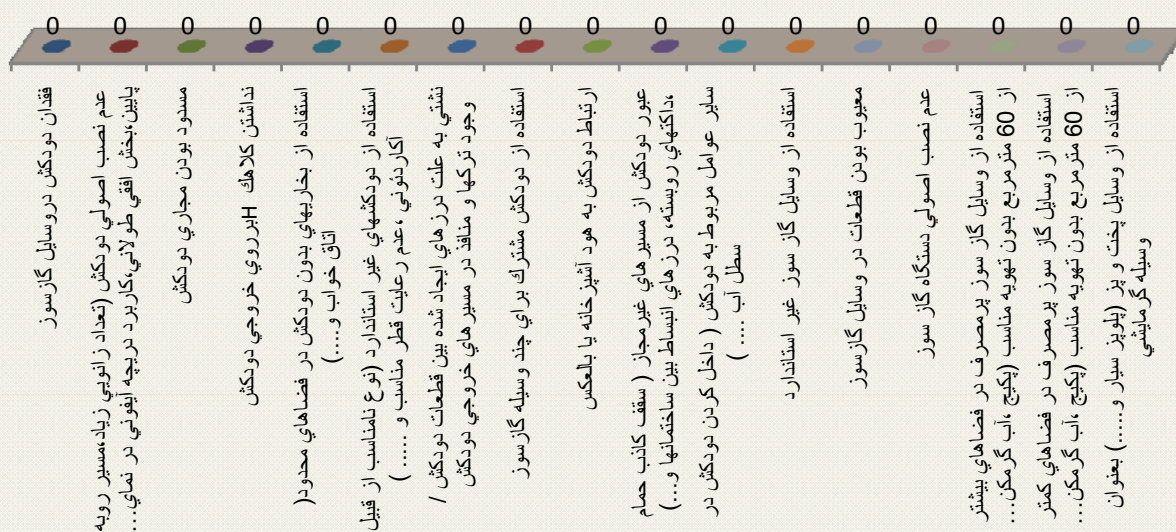 0 0 0 0 0 0 0 0 0 0 0 0 0 0 0 0 0
فقدان دودكش دروسايل گازسوز
عدم نصب اصولي دودكش (تعداد زانويي زياد،مسير روبه
پايين،بخش افقي طولاني،كاربرد دريچه آيفوني در نماي...
مسدود بودن مجاري دودكش
نداشتن كلاهك Hبرروي خروجي دودكش
استفاده از بخاريهاي بدون دودكش در فضاهاي محدود(
اتاق خواب و....)
استفاده از دودكشهاي غير استاندارد (نوع نامناسب از قبيل
آكاردئوني ،عدم رعايت قطر مناسب و ..... )
نشتي به علت درزهاي ايجاد شده بين قطعات دودكش /
وجود تركها و منافذ در مسيرهاي خروجي دودكش
استفاده از دودكش مشترك براي چند وسيله گازسوز
ارتباط دودكش به هود آشپزخانه يا بالعكس
عبور دودكش از مسيرهاي غيرمجاز ( سقف كاذب حمام
،داكتهاي روبسته، درزهاي انبساط بين ساختمانها و...)
ساير عوامل مربوط به دودكش ( داخل كردن دودكش در
سطل آب .... )
استفاده از وسايل گاز سوز غير استاندارد
معيوب بودن قطعات در وسايل گازسوز
عدم نصب اصولي دستگاه گاز سوز
استفاده از وسايل گاز سوز پرمصرف در فضاهاي بيشتر
از 60 مترمربع بدون تهويه مناسب (پكيج ،آب گرمكن...
استفاده از وسايل گاز سوز پرمصرف در فضاهاي كمتر
از 60 مترمربع بدون تهويه مناسب (پكيج ،آب گرمكن...
استفاده از وسايل پخت و پز (پلوپز سيار و.....) بعنوان
وسيله گرمايشي